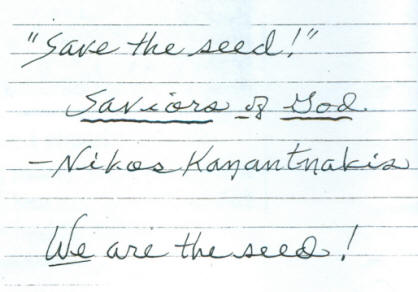 "Save the seed!"
Saviors of God
- Nikos Kanantnakis
We are the seed!